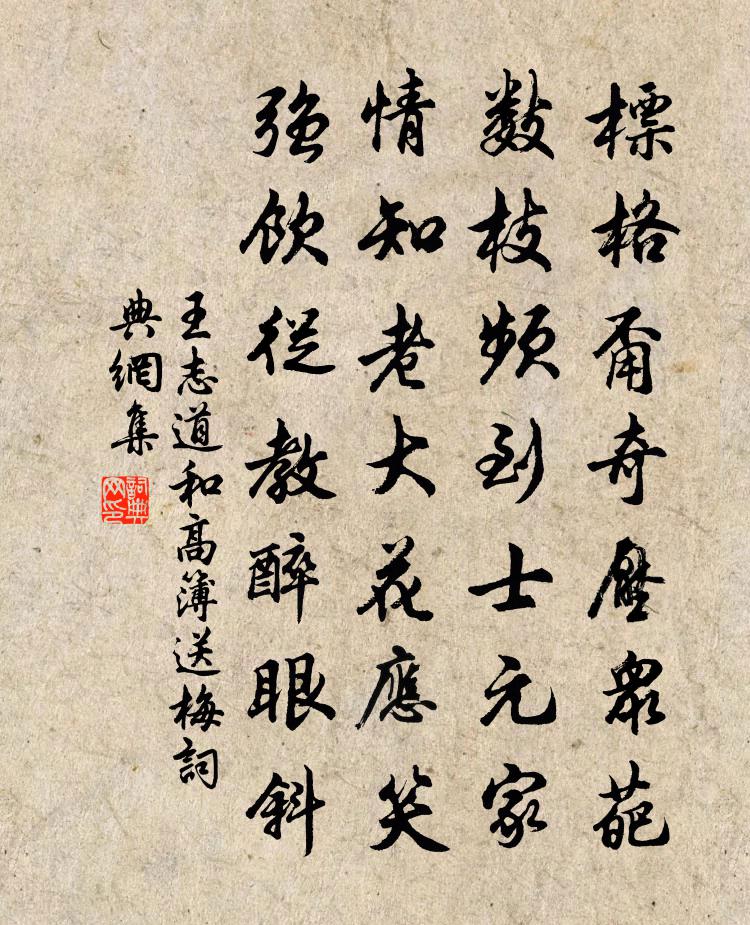 標格爾奇壓眾葩
數枝頻到士元家
情知老大花應笑
強飲從教醉眼斜
王志道和高簿送梅詞
典網集
詞典
网印